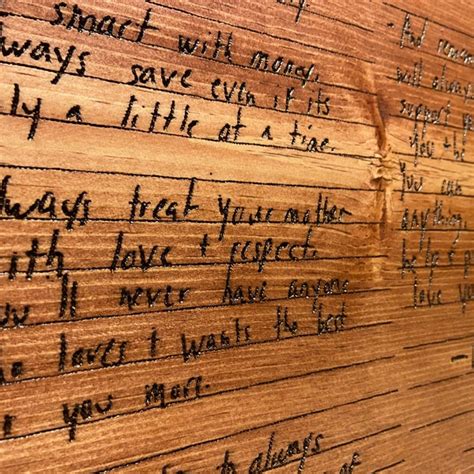 smart with money.
lways save even if its
ly a little at a time.
lways treat your mother
ith love + respect.
ou'll never have anyone
ho loves + wants the best
you more.
to always
of
- And remem
will alway
support
You
You can
anything.
love yo